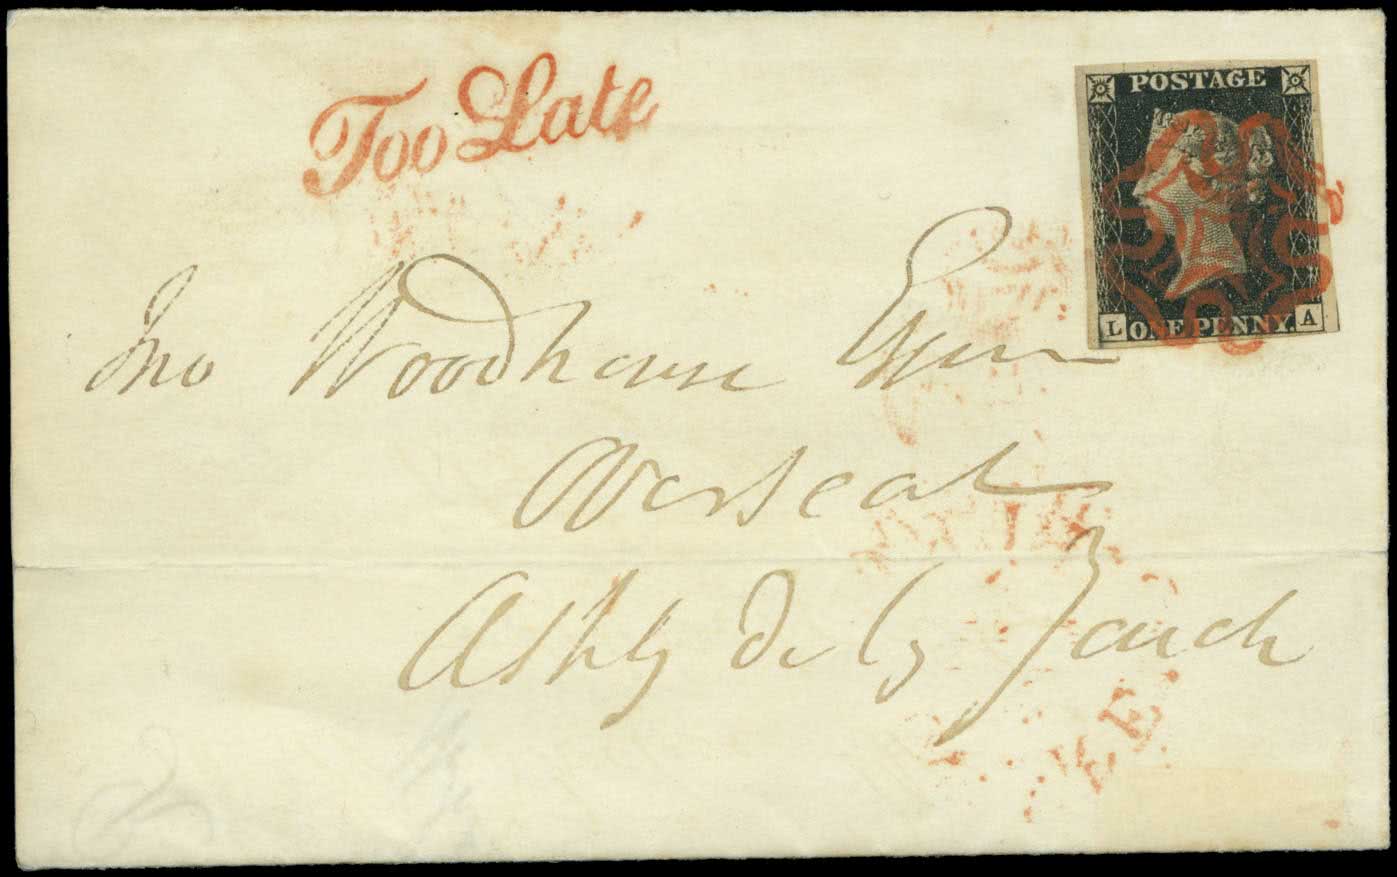 Too Late
POSTAGE
L ONE PENNY. A
Jno Woodhouse Esqre
Overseal
Ashby De la Zouch